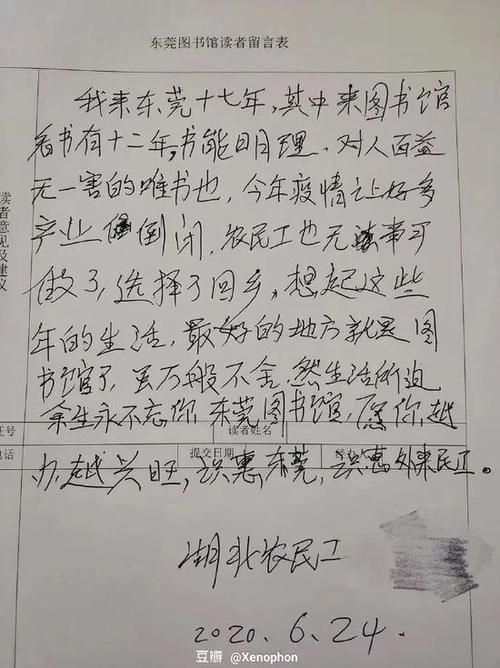 东莞图书馆读者留言表
读者意见及建议
我来东莞十七年,其中来图书馆
看书有十二年,书能明理、对人百益
无一害的唯书也,今年疫情让好多
产业倒闭,农民工也无事可
做了,选择了回乡,想起这些
年的生活,最好的地方就是图
书馆了,虽万般不舍,然生活所迫
余生永不忘你,东莞图书馆,愿你越
办越兴旺,识惠东莞,识惠外来民工。
证号
读者姓名
电话
提交日期
湖北农民工
2020.6.24.
豆瓣 @Xenophon